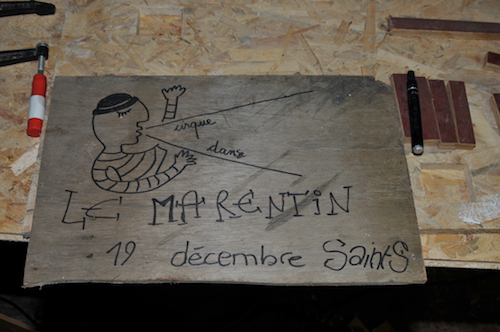 cirque
danse
LE MARENTIN
19 décembre SaintS